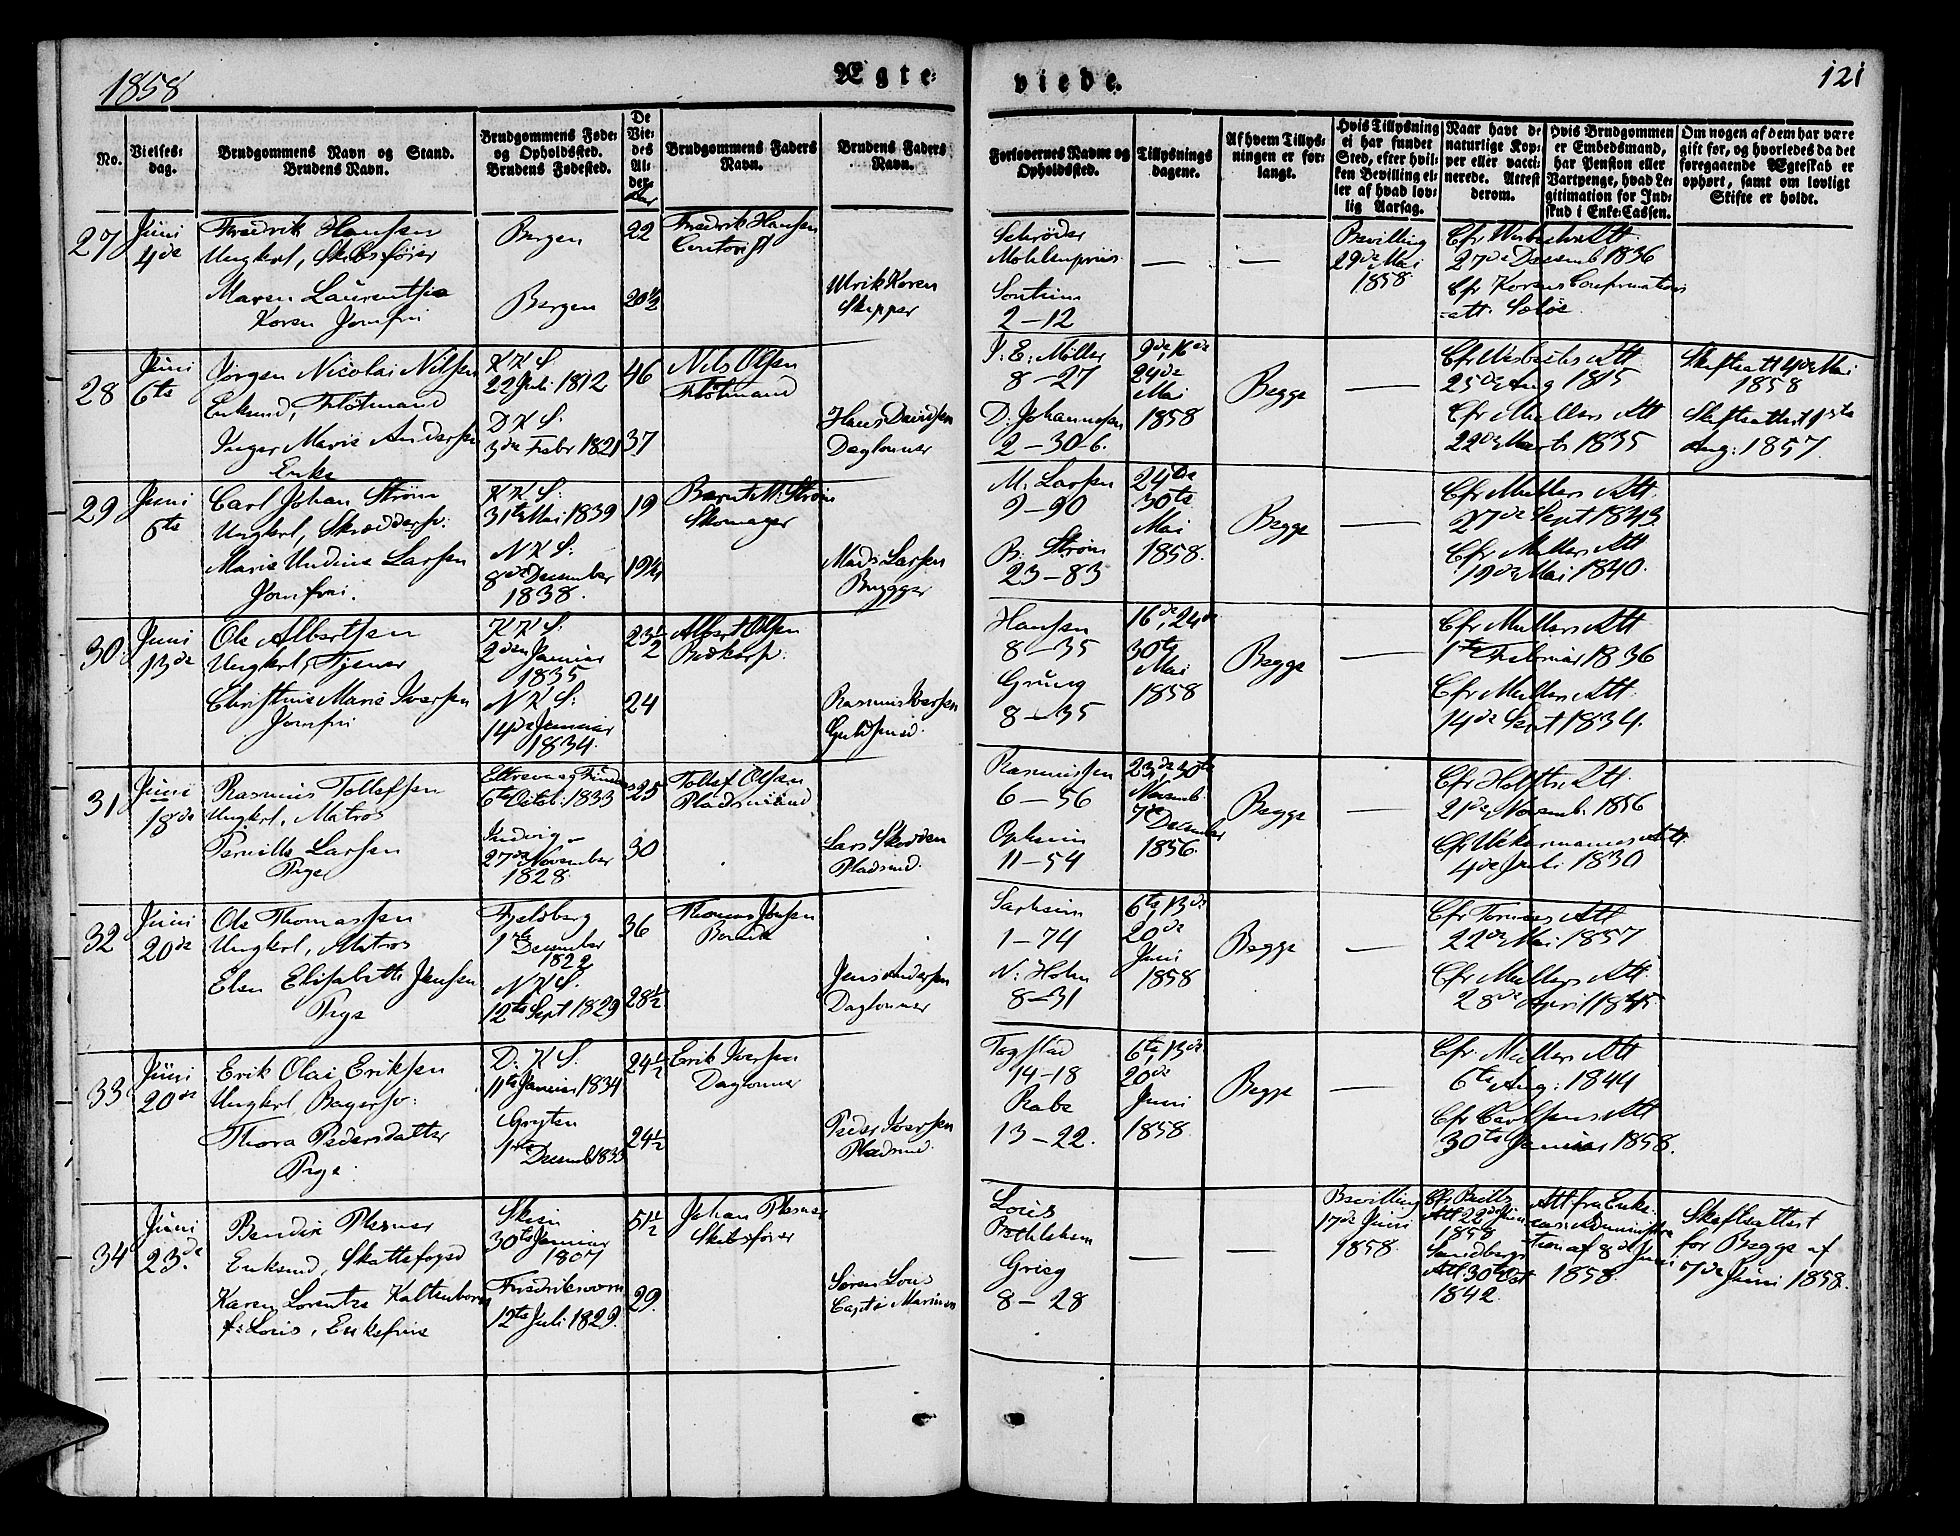 1858
Ægte-
viede.
121
No.
Vielses-
dag.
Brudgommens Navn og Stand.
Brudens Navn.
Brudgommens Føde-
og Opholdssted.
Brudens Fødested.
De
Vie-
des
Al-
der.
Brudgommens Faders
Navn.
Brudens Faders
Navn.
Forlovernes Navne og
Opholdssted.
Tillysnings
dagene.
Af hvem Tillys-
ningen er for-
langt.
Hvis Tillysning
ei har fundet
Sted, efter hvil-
ken Bevilling el-
ler af hvad lov-
lig Aarsag.
Naar havt de
naturlige Kop-
per eller vacci-
nerede. Attest
derom.
Hvis Brudgommen
er Embedsmand,
har Pension eller
Vartpenge, hvad Le-
gitimation for Ind-
skud i Enke-Cassen.
Om nogen af dem har være
gift før, og hvorledes da det
foregaaende Ægteskab er
ophørt, samt om lovligt
Skifte er holdt.
27
Juni
4de
Fredrik Hansen
Ungkrl, Skibsfører
Maren Laurentse
Koren Jomfru
Bergen
Bergen
22
20½
Fredrik Hansen
Contorist
Ulrik Koren
Skipper
Schrøder
Sontum
2-12
—
—
Bevilling
29de Mai
1858
27de Decemb 1836
28
Juni
6te
Jørgen Nicolai Nilsen
Enkmd, Fløtmand
Inger Marie Andersen
Enke
K K S.
22 Juli 1812
D K S.
3de Febr 1821
46
37
Nils Olsen
Fløtmand
Hans Davidsen
Daglønner
J. E. Møller
8-27
D. Johannesen
2-30-6.
9de, 16de
24de
Mai
1858
Begge
—
25de Aug 1815
Cfr Mullers Att
22de Marts 1835
Skifteatt 4de Mai
1858
Skifteattest 1ste
Aug: 1857.
29
Juni
6te
Carl Johan Strøm
Ungkrl, Skrædersv:
Marie Undine Larsen
Jomfru.
K K S:
31te Mai 1839
N K S:
8de December
1838.
19
19¼
Bernt M. Strøm
Skomager
Mads Larsen
Brygger
M. Larsen
9-90
B. Strøm
23-83
24de
30te
Mai
1858.
Begge
—
Cfr Mullers Att
27de Sept 1843
Cfr Mullers Att
19de Mai 1840.
30
Juni
13de
Ole Albertsen
Ungkrl, Tjener
Christine Marie Iversen
Jomfru
K K S.
2den Januar
1835
N K S:
14de Januar
1834.
23½
24
Albert Olsen
Rasmus Iversen
Guldsmed.
Hansen
8-35
Grung
8-35
16de, 24de
30te
Mai
1858
Begge
—
Cfr Mullers Att
1ste Februar 1836
Cfr Mullers Att
14de Sept 1834.
31
Juni
18de
Rasmus Tollefsen
Ungkrl, Matros
Pernille Larsen
Pige
6te Octob. 1833
Indvig
27de November
1828.
25
30
Tollef Olsen
Pladsmand
Lars Skodden
Pladsmd.
Rasmussen
6-56
Opheim
11-54
23de, 30te
Novemb
7de December
1856.
Begge
—
Cfr Holfts Att
21de Novemb. 1856
Cfr Uckermannes Att.
4de Juli 1830
32
Juni
20de
Ole Thomassen
Ungkrl, Matros
Elen Elisabeth Jensen
Pige
Fjelberg
1ste December
1822
N K S.
12te Sept 1829
36
28½
Thomas Johnsen
Bonde
Jens Andersen
Daglønner
Sarheim
1-74
N. Holm
8-31
6te, 13de
20de
Juni
1858
Begge
—
22de Mai 1857
Cfr Mullers Att.
28de April 1845.
33
Juni
20de
Erik Olai Eriksen
Ungkrl, Bagersv:
Thora Pedersdatter
Pige.
D: K S.
11te Januar 1834
Gryten
1ste Decemb 1833
24½
24½
Erik Iversen
Daglønner
Peder Iversen
Pladsmd.
Tagstad
14-18
Rabe
13-22.
6te, 13de
20de
Juni
1858.
Begge
—
Cfr Mullers Att
6te Aug: 1844
Cfr Carlsens Att
30te Januar 1858.
34
Juni
23de
Bendix Plesner
Enkmd, Skattefoged
Karen Lorentze Kaltenborn
f: Louis, Enkefrue
Skien
30te Januar
1807
Fredriksværn
12te Juli 1829.
51½
29.
Johan Plesner
Skibsfører
Søren Louis
Capt: Marinen
Louis
Bethlehem
Grieg
8-28
—
—
Bevilling
17de Juni
1858.
Cfr Bulls
Att 22de Juni
1858
Sandbergs
Att 30te Oct
1842.
Att fra Enke-
cassens Administra
tion af 8de Juni
1858.
Skifteattest
for Begge af
7de Juni 1858.